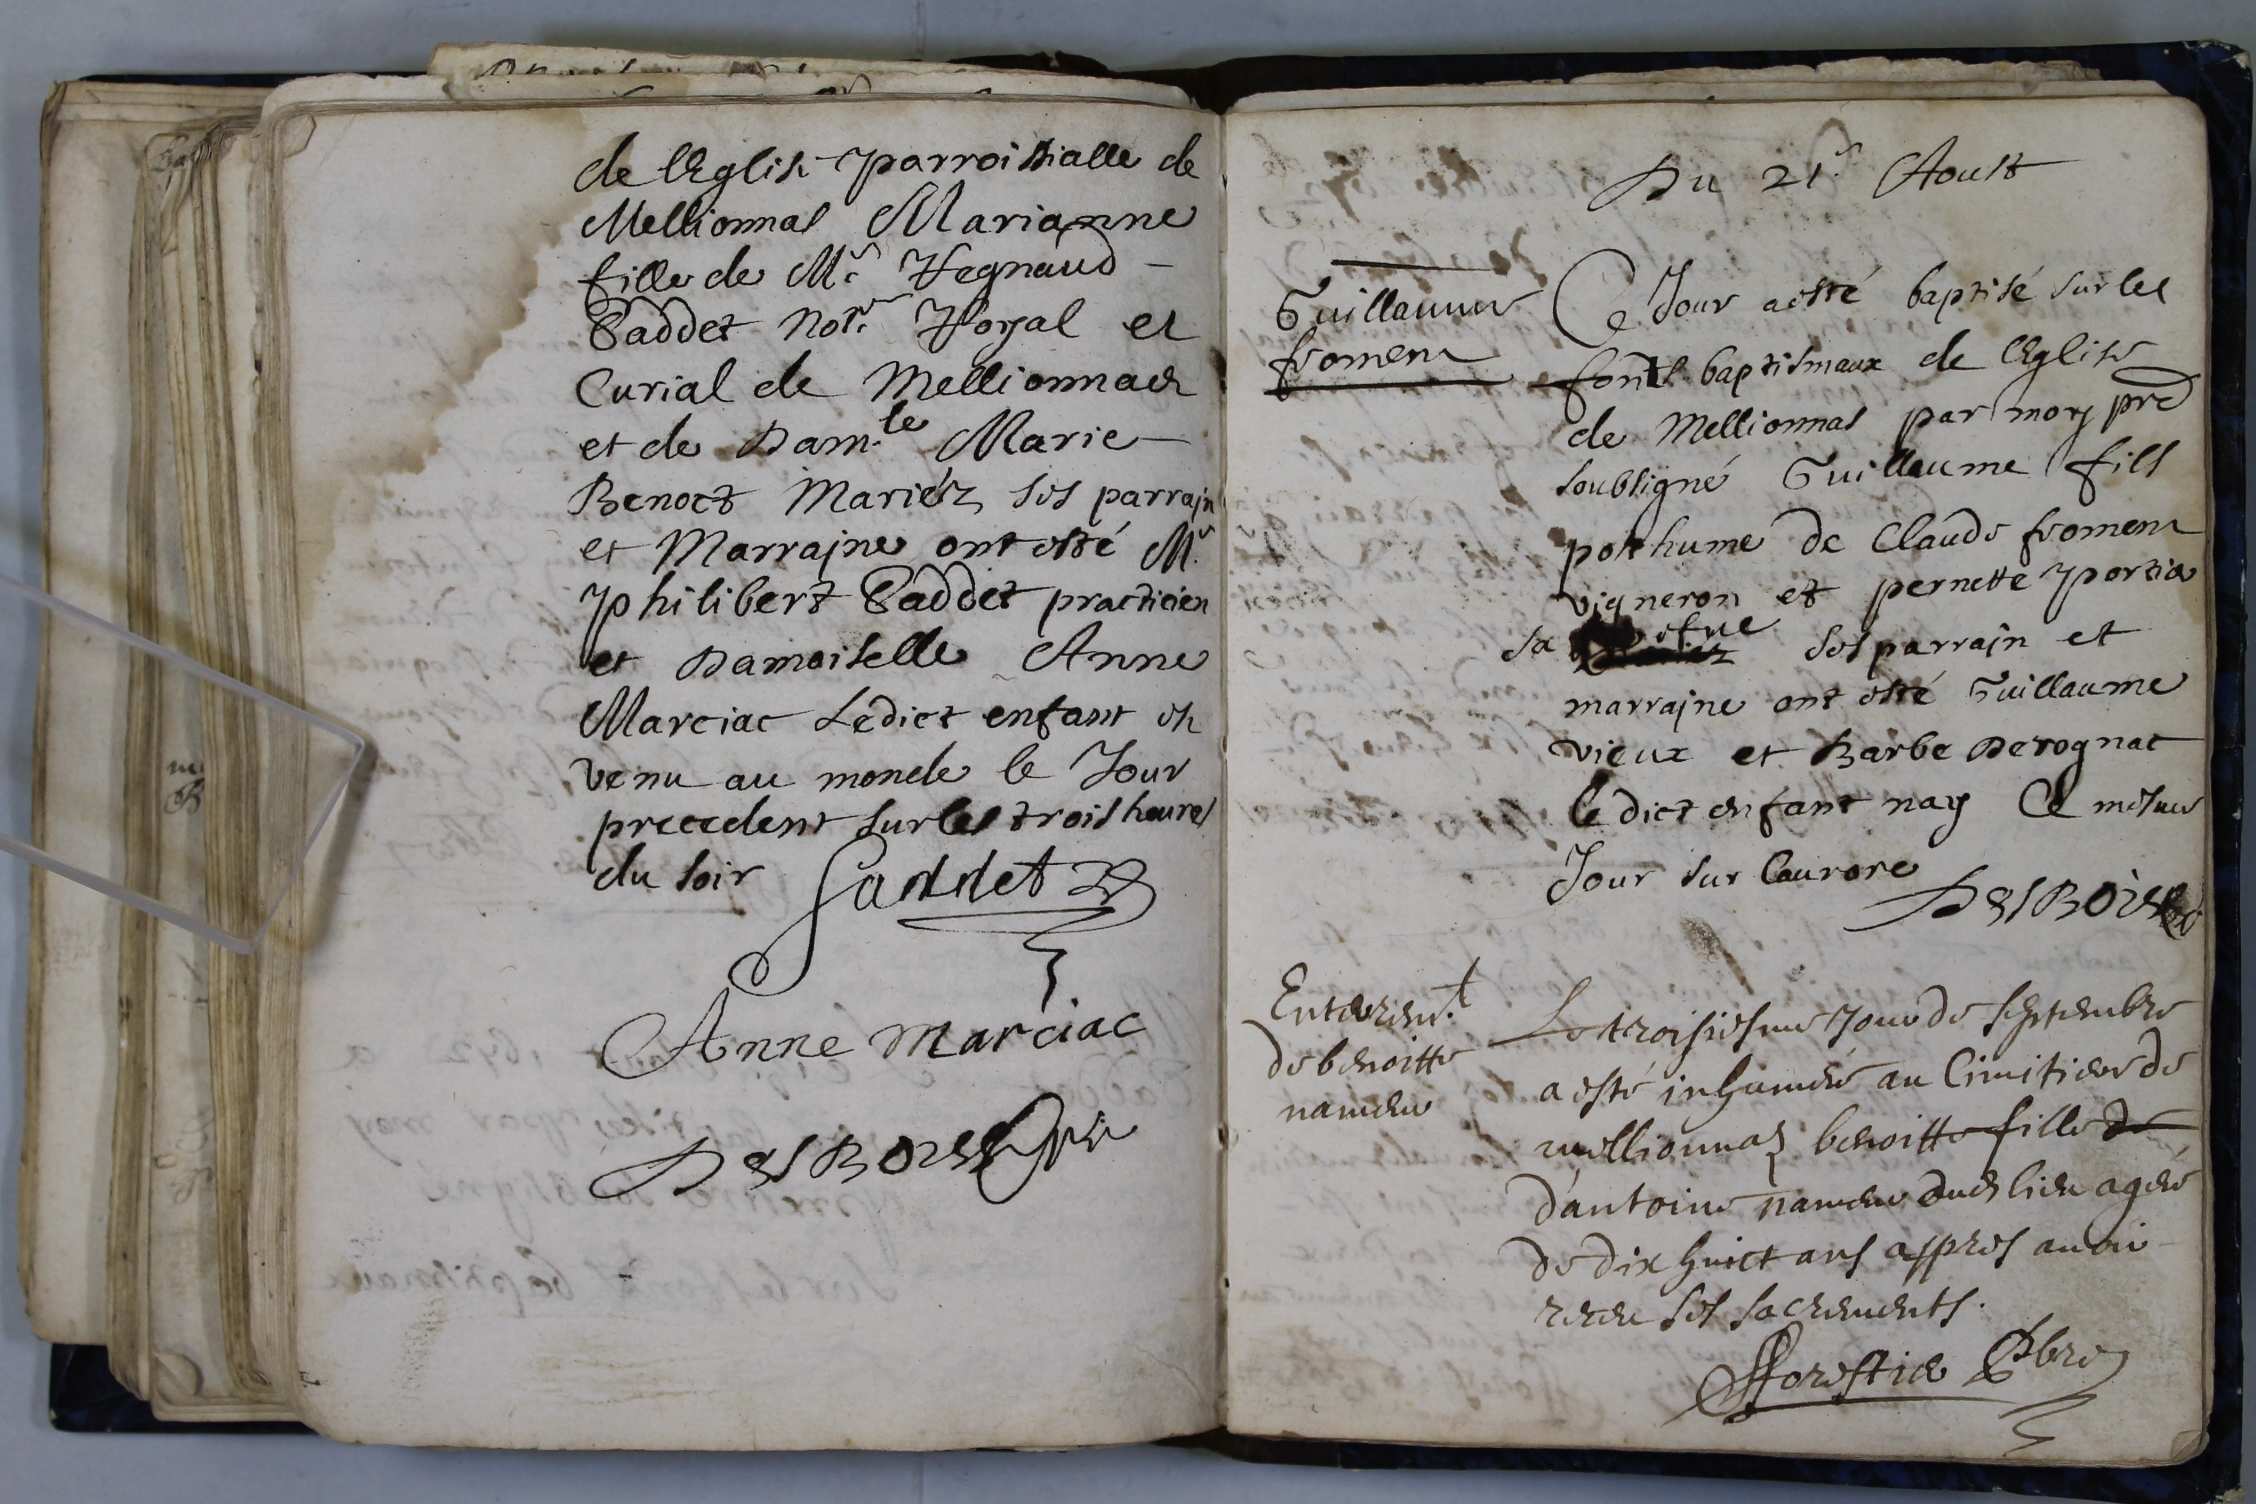 de l'Eglise parroissialle de
Mellionnas Marianne
fille de Mr. Regnaud
Gaddet Notre. Royal et
Curial de Mellionnas
et de Dam.le Marie
Benoet Mariéz ses parrajn
et Marrajne ont esté Mr.
philibert Gaddet practicien
et Damoiselle Anne
Marciac Ledict enfant est
venu au monde le Jour
precedent sur les trois heures
du soir Gaddet
Anne Marciac
DesBois
Du 21e. Aoust
Guillaume
froment
Ce Jour a esté baptisé sur les
fonts baptismaux de l'Eglise
de Mellionnas par moy pre
soubsigné Guillaume fils
posthume de Claude froment
vigneron et pernette portier
sa vefve ses parrajn et
marrajne ont esté Guillaume
vieux et Barbe Derognat
le dict enfant nay Ce mesme
Jour sur l'aurore
DesBois
Enterrem.t
de benoitte
Le troisiesme Jour de septembre
a esté inhumée au Cimitiere de
mellionnas benoitte fille de
d'antoine dud lieu agée
de dix huict ans appres avoir
receu ses sacrements.
fforestier Pbre